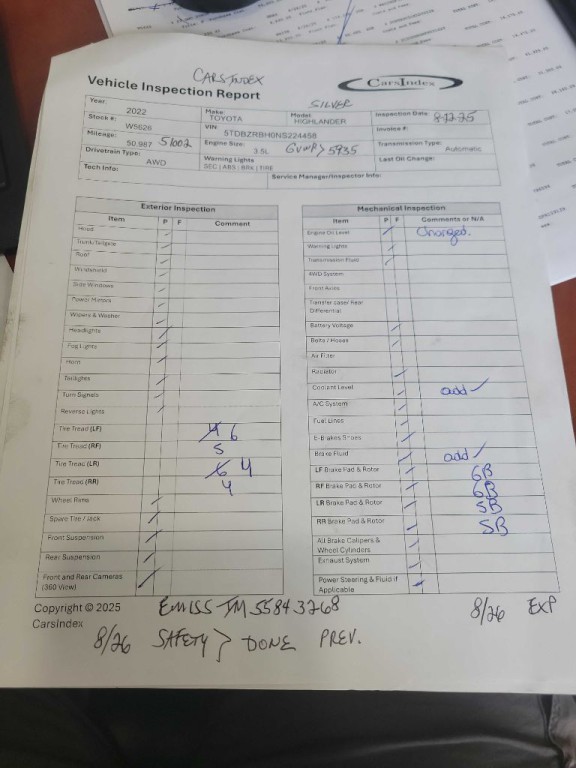 CARSINDEX
Vehicle Inspection Report
CarsIndex
SILVER
Year: 2022 Make: TOYOTA Model HIGHLANDER Inspection Date 8-22-25
Stock #: W5626 VIN: 5TDBZRBH0NS224458 Invoice #:
Mileage: 50,987 51002 Engine Size: 3.5L GVWR> 5935 Transmission Type: Automatic
Drivetrain Type: AWD Warning Lights Last Oil Change:
Tech Info: Service Manager/Inspector Info:
Exterior Inspection
Item P F Comment
Hood
Trunk/Tailgate
Roof
Windshield
Side Windows
Power Mirrors
Wipers & Washer
Headlights
Fog Lights
Horn
Taillights
Turn Signals
Reverse Lights
Tire Tread (LF) 6
Tire Tread (RF) 5
Tire Tread (LR) 6 4
Tire Tread (RR) 4
Wheel Rims
Spare Tire / Jack
Front Suspension
Rear Suspension
Front and Rear Cameras
(360 View)
Mechanical Inspection
Item P F Comments or N/A
Engine Oil Level Changed.
Warning Lights
Transmission Fluid
4WD System
Front Axles
Transfer case/ Rear
Differential
Battery Voltage
Belts / Hoses
Air Filter
Radiator
Coolant Level add ✓
A/C System
Fuel Lines
E-Brakes Shoes
Brake Fluid add ✓
LF Brake Pad & Rotor 6B
RF Brake Pad & Rotor 6B
LR Brake Pad & Rotor 5B
RR Brake Pad & Rotor 5B
All Brake Calipers &
Wheel Cylinders
Exhaust System
Power Steering & Fluid if
Applicable
Copyright © 2025
CarsIndex
EMISS TM 55843268 8/26 EXP
8/26 SAFETY> DONE PREV.